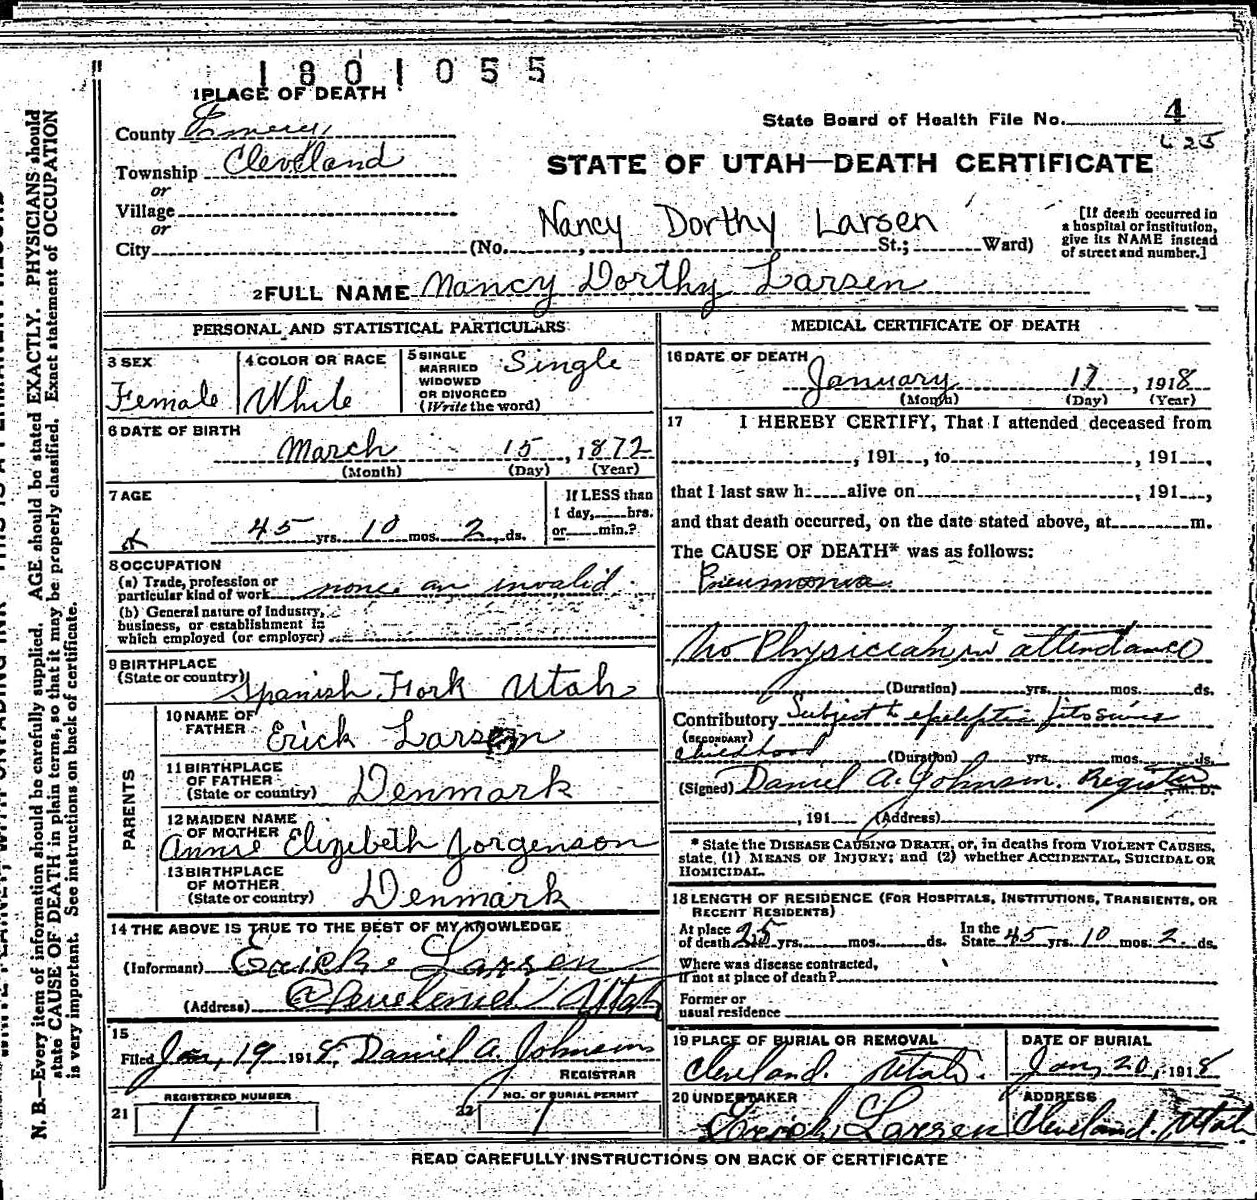 1801055
1 PLACE OF DEATH
County Emery
State Board of Health File No. 4
Township Cleveland
STATE OF UTAH—DEATH CERTIFICATE
or
Village
or
City (No. Nancy Dorthy Larsen St.; Ward)
[If death occurred in
a hospital or institution,
give its NAME instead
of street and number.]
2 FULL NAME Nancy Dorthy Larsen
PERSONAL AND STATISTICAL PARTICULARS
3 SEX
Female
4 COLOR OR RACE
White
5 SINGLE
MARRIED
WIDOWED
OR DIVORCED
(Write the word)
Single
6 DATE OF BIRTH
March 15, 1872
(Month) (Day) (Year)
7 AGE
45 yrs. 10 mos. 2 ds.
If LESS than
1 day, hrs.
or min.?
8 OCCUPATION
(a) Trade, profession or
particular kind of work none an invalid
(b) General nature of Industry,
business, or establishment in
which employed (or employer)
9 BIRTHPLACE
(State or country) Spanish Fork Utah
PARENTS
10 NAME OF
FATHER Erick Larsen
11 BIRTHPLACE
OF FATHER
(State or country) Denmark
12 MAIDEN NAME
OF MOTHER
Annie Elizebeth Jorgenson
13 BIRTHPLACE
OF MOTHER
(State or country) Denmark
14 THE ABOVE IS TRUE TO THE BEST OF MY KNOWLEDGE
(Informant) Erick Larsen
(Address) Cleveland Utah
15
Filed Jan, 19 1918, Daniel A. Johnson
REGISTRAR
21 REGISTERED NUMBER
1
22 NO. OF BURIAL PERMIT
1
MEDICAL CERTIFICATE OF DEATH
16 DATE OF DEATH
January 17, 1918
(Month) (Day) (Year)
17 I HEREBY CERTIFY, That I attended deceased from
, 191 , to , 191 ,
that I last saw h alive on , 191 ,
and that death occurred, on the date stated above, at m.
The CAUSE OF DEATH* was as follows:
Pneumonia
No Physician in attendance
(Duration) yrs. mos. ds.
Contributory Subject to epeleptic fits since
(SECONDARY)
childhood (Duration) yrs. mos. ds.
(Signed) Daniel A. Johnson. Register M. D.
, 191 (Address)
* State the DISEASE CAUSING DEATH, or, in deaths from VIOLENT CAUSES,
state, (1) MEANS OF INJURY; and (2) whether ACCIDENTAL, SUICIDAL OR
HOMICIDAL.
18 LENGTH OF RESIDENCE (FOR HOSPITALS, INSTITUTIONS, TRANSIENTS, OR
RECENT RESIDENTS)
At place
of death 25 yrs. mos. ds.
In the
State 45 yrs. 10 mos. 2 ds.
Where was disease contracted,
if not at place of death?
Former or
usual residence
19 PLACE OF BURIAL OR REMOVAL
Cleveland. Utah.
DATE OF BURIAL
Jan, 20, 1918
20 UNDERTAKER
Erick Larsen
ADDRESS
Cleveland. Utah
READ CAREFULLY INSTRUCTIONS ON BACK OF CERTIFICATE
N. B.—Every item of information should be carefully supplied. AGE should be stated EXACTLY. PHYSICIANS should
state CAUSE OF DEATH in plain terms, so that it may be properly classified. Exact statement of OCCUPATION
is very important. See instructions on back of certificate.